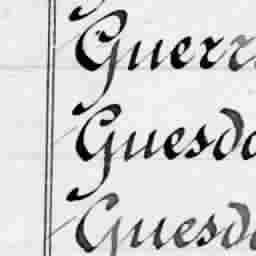 Guerr
Guesd
Guesd